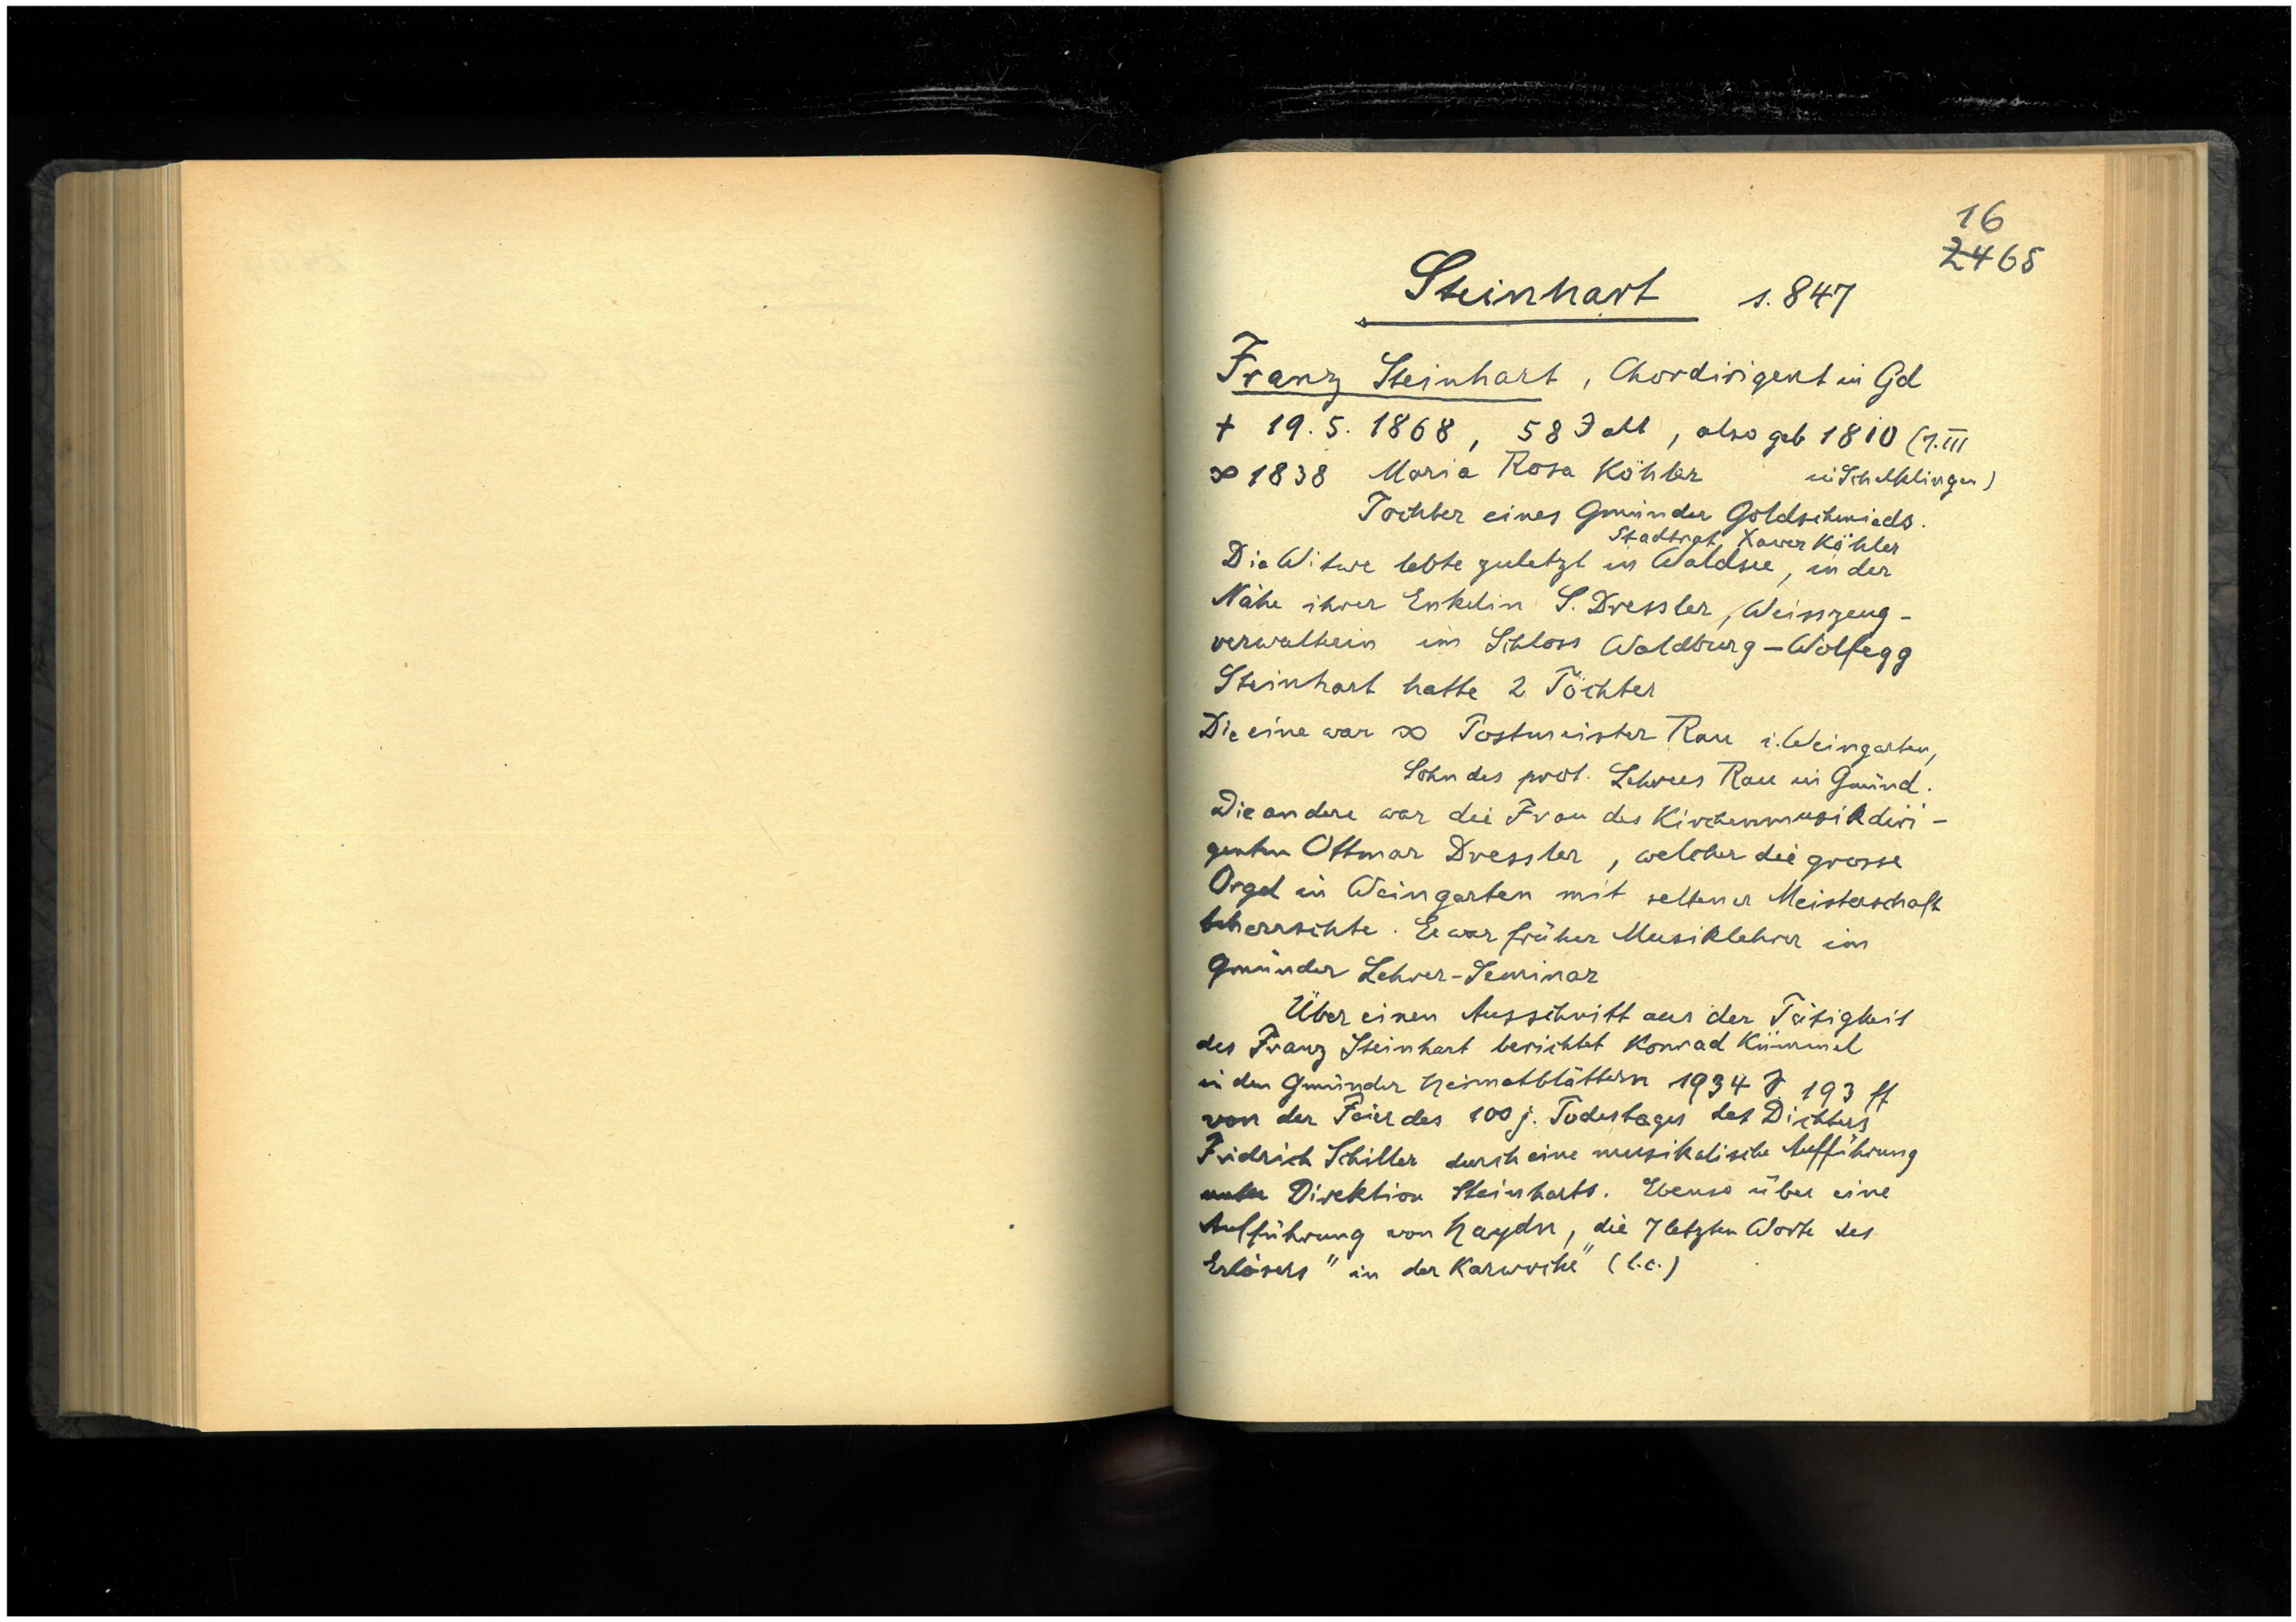 16
2465
Steinhart s. 847
Franz Steinhart, Chordirigent in Gd
† 19. 5. 1868, 58 J alt, also geb 1810 (7. III
∞ 1838 Maria Rosa Köhler in Schelklingen)
Tochter eines Gmünder Goldschmieds.
Stadtrat Xaver Köhler
Die Witwe lebte zuletzt in Waldsee, in der
Nähe ihrer Enkelin S. Dressler, Weisszeug-
verwalterin im Schloss Waldburg-Wolfegg
Steinhart hatte 2 Töchter
Die eine war ∞ Postmeister Rau i. Weingarten,
Sohn des prot. Lehrers Rau in Gmünd.
Die andere war die Frau des Kirchenmusikdiri-
genten Ottmar Dressler, welcher die grosse
Orgel in Weingarten mit seltener Meisterschaft
beherrschte. Er war früher Musiklehrer im
Gmünder Lehrer-Seminar
Über einen Ausschnitt aus der Tätigkeit
des Franz Steinhart berichtet Konrad Kümmel
in den Gmünder Heimatblättern 1934 S 193 ff
von der Feier des 100 j. Todestages des Dichters
Fridrich Schiller durch eine musikalische Aufführung
unter Direktion Steinharts. Ebenso über eine
Aufführung von Haydn, die 7 letzten Worte des
Erlösers" in der Karwoche" (l.c.)